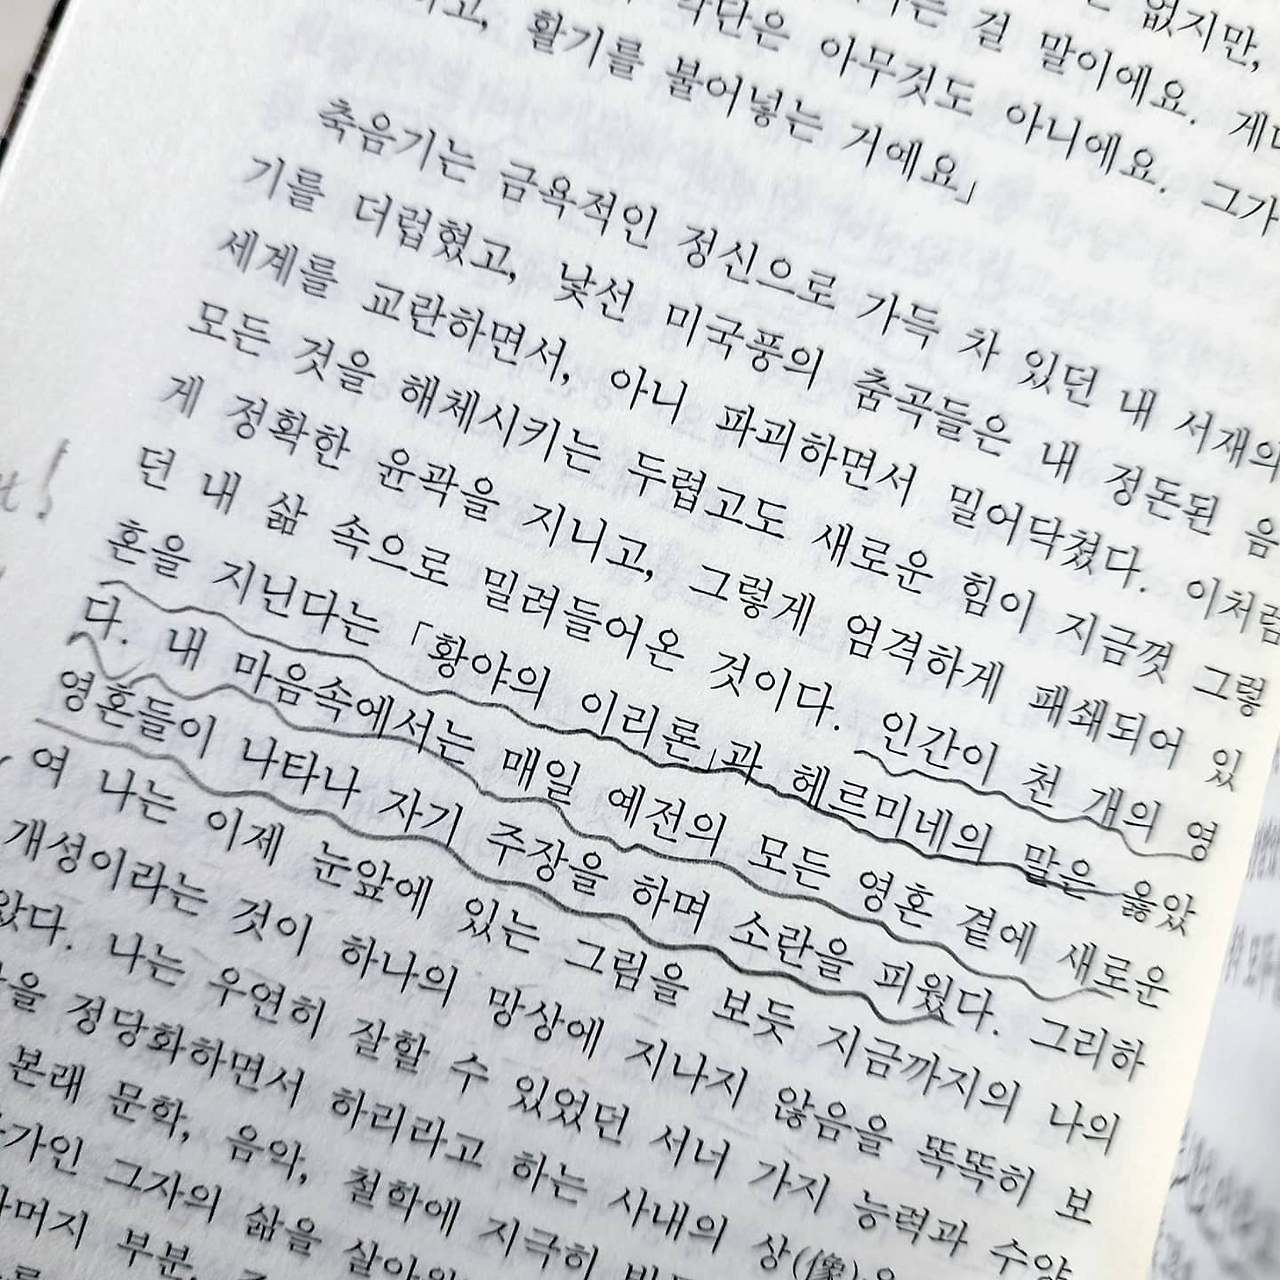 없지만,
걸 말이에요. 게다
악단은 아무것도 아니에요. 그가
활기를 불어넣는 거예요」
축음기는 금욕적인 정신으로 가득 차 있던 내 서재의
기를 더럽혔고, 낯선 미국풍의 춤곡들은 내 정돈된 음
세계를 교란하면서, 아니 파괴하면서 밀어닥쳤다. 이처럼
모든 것을 해체시키는 두렵고도 새로운 힘이 지금껏 그렇
게 정확한 윤곽을 지니고, 그렇게 엄격하게 폐쇄되어 있
던 내 삶 속으로 밀려들어온 것이다. 인간이 천 개의 영
혼을 지닌다는 「황야의 이리론」과 헤르미네의 말은 옳았
다. 내 마음속에서는 매일 예전의 모든 영혼 곁에 새로운
영혼들이 나타나 자기 주장을 하며 소란을 피웠다. 그리하
여 나는 이제 눈앞에 있는 그림을 보듯 지금까지의 나의
개성이라는 것이 하나의 망상에 지나지 않음을 똑똑히 보
았다. 나는 우연히 잘할 수 있었던 서너 가지 능력과 수양
을 정당화하면서 하리라고 하는 사내의 상(像)을
본래 문학, 음악, 철학에 지극히
그자의 삶을
부분,